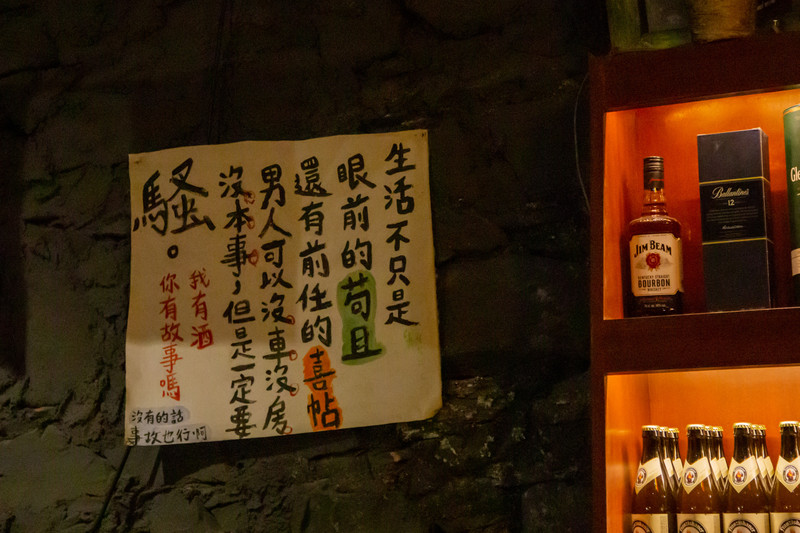 生活不只是
眼前的苟且
還有前任的喜帖
男人可以沒車沒房
沒本事,但是一定要
騷。
我有酒
你有故事嗎
沒有的話
事故也行啊
JIM BEAM
KENTUCKY STRAIGHT
BOURBON
WHISKEY
Ballantine's
12
Gle